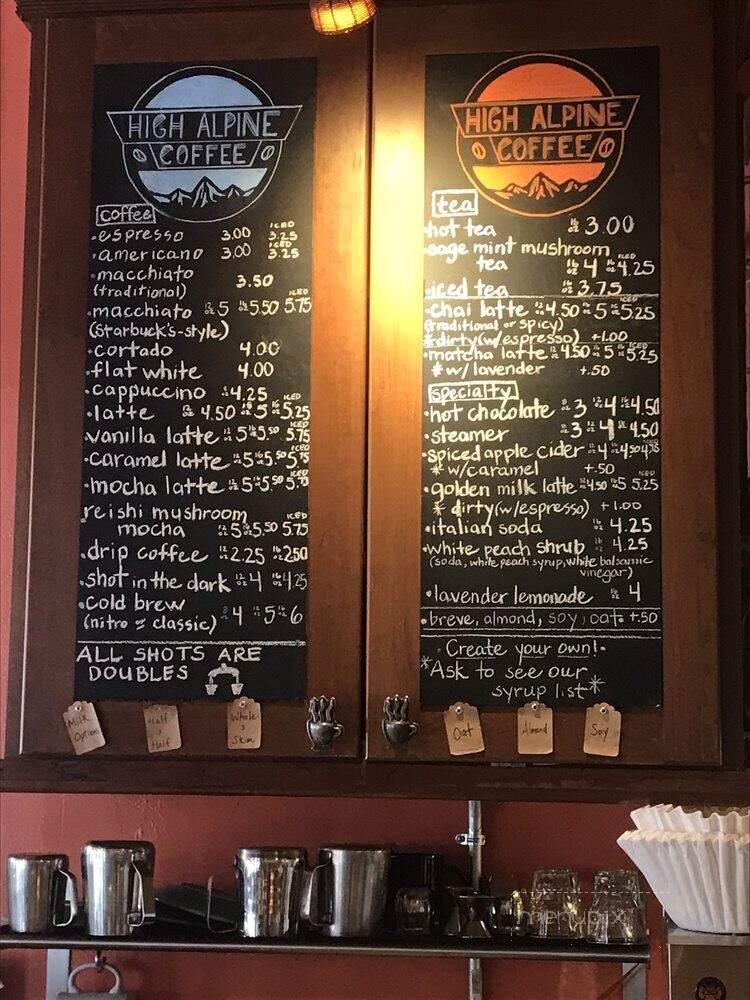 HIGH ALPINE
COFFEE
coffee
ICED
•espresso 3.00 3.25
ICED
•americano 3.00 3.25
•macchiato
(traditional) 3.50
ICED
•macchiato 12oz 5 16oz 5.50 5.75
(Starbuck's-style)
•cortado 4.00
•flat white 4.00
•cappuccino 4.25
ICED
•latte 12oz 4.50 16oz 5 5.25
ICED
•vanilla latte 12oz 5 16oz 5.50 5.75
ICED
•caramel latte 12oz 5 16oz 5.50 5.75
ICED
•mocha latte 12oz 5 16oz 5.50 5.75
•reishi mushroom
ICED
mocha 12oz 5 16oz 5.50 5.75
•drip coffee 12oz 2.25 16oz 2.50
•shot in the dark 12oz 4 16oz 4.25
•cold brew
(nitro or classic) 8oz 4 12oz 5 16oz 6
ALL SHOTS ARE
DOUBLES
Milk
Options
Half
&
Half
Whole
&
Skim
HIGH ALPINE
COFFEE
tea
•hot tea 16oz 3.00
•sage mint mushroom
ICED
tea 12oz 4 16oz 4.25
•iced tea 16oz 3.75
ICED
•chai latte 12oz 4.50 16oz 5 5.25
(traditional or spicy)
*dirty (w/espresso) +1.00
ICED
•matcha latte 12oz 4.50 16oz 5 5.25
*w/ lavender +.50
specialty
•hot chocolate 8oz 3 12oz 4 16oz 4.50
•steamer 8oz 3 12oz 4 16oz 4.50
ICED
•spiced apple cider 12oz 4 16oz 4.50 4.75
*w/caramel +.50
ICED
•golden milk latte 12oz 4.50 16oz 5 5.25
*dirty (w/espresso) +1.00
•italian soda 16oz 4.25
•white peach shrub 16oz 4.25
(soda, white peach syrup, white balsamic
vinegar)
•lavender lemonade 16oz 4
•breve, almond, soy, oat +.50
•Create your own!•
*Ask to see our
syrup list*
Oat
Almond
Soy
menupix